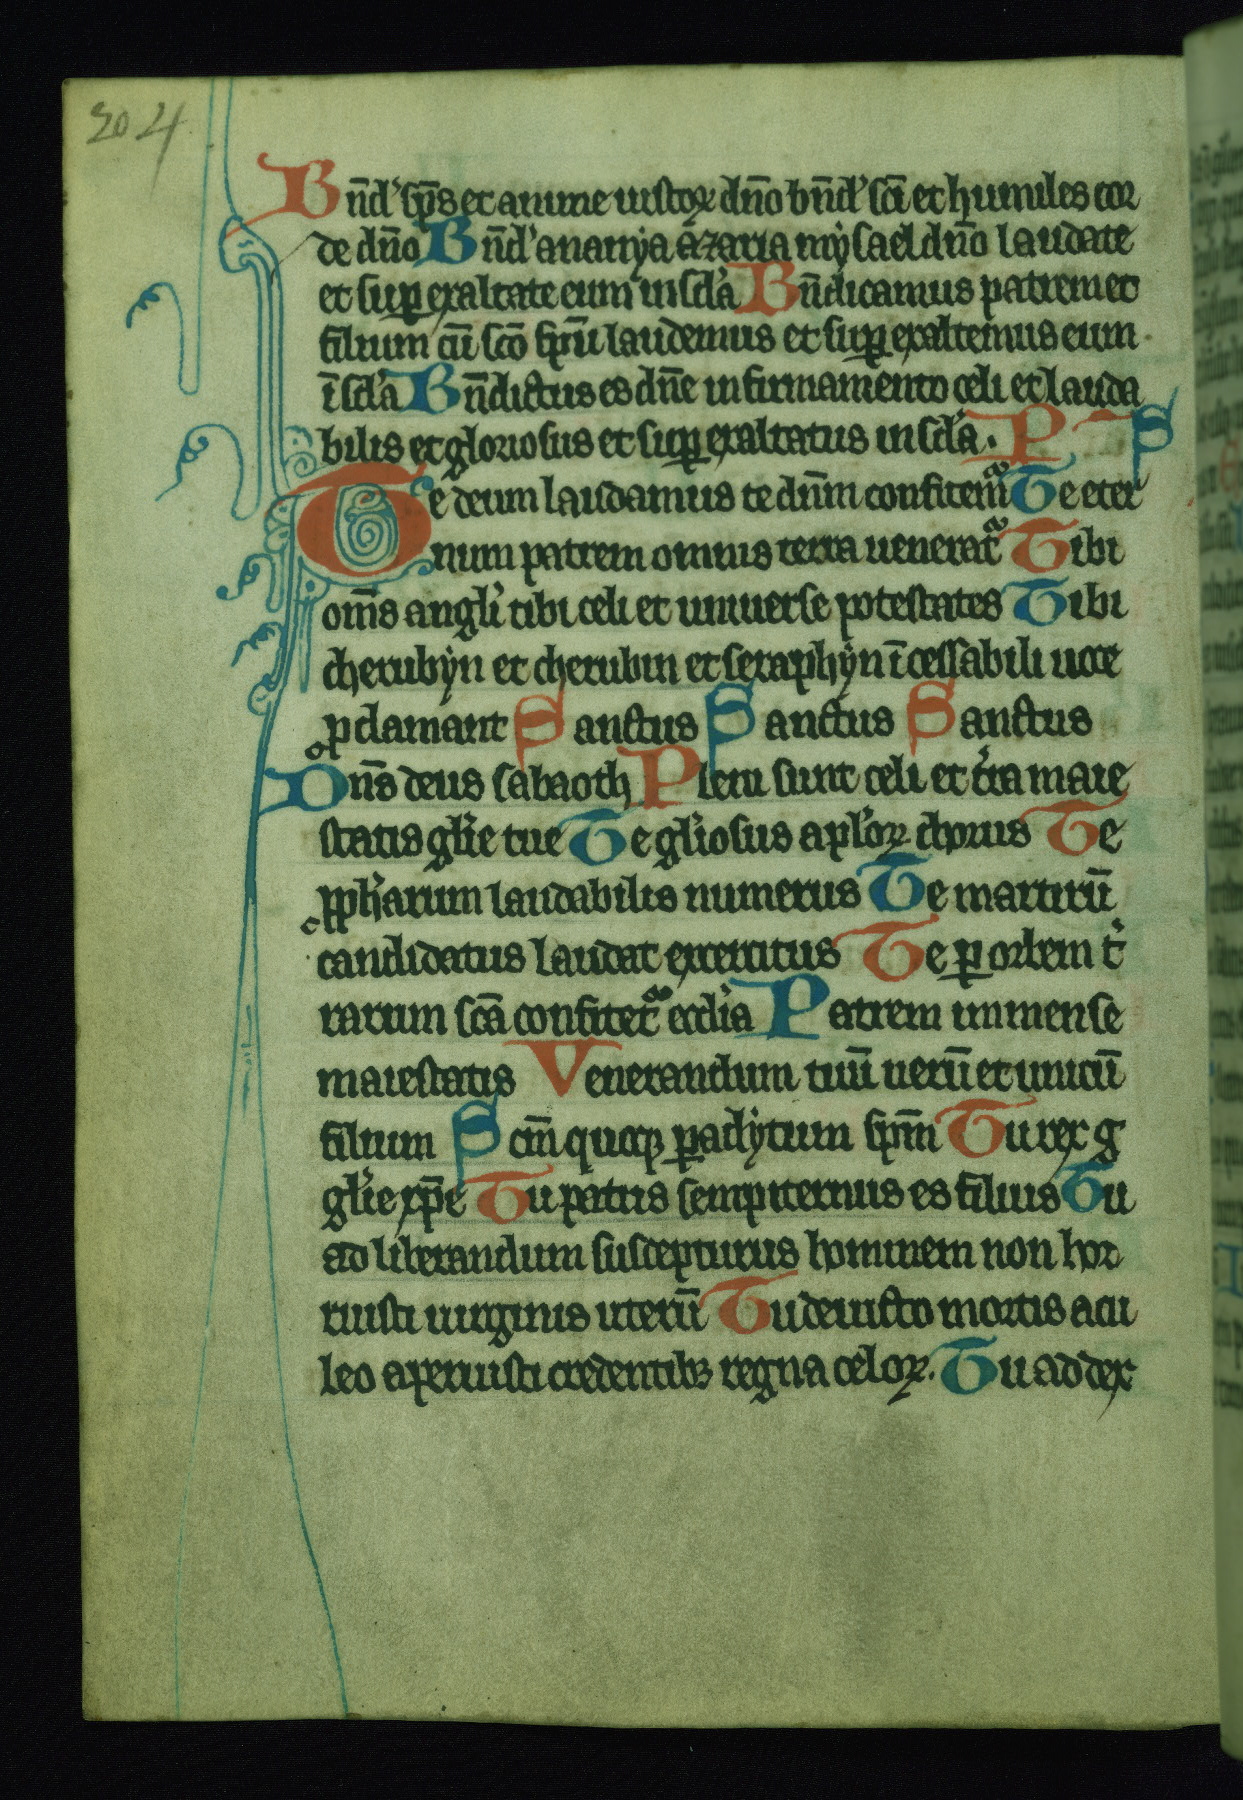 204
Bn̄d' sp̄s et anime iustoꝝ dn̄o bn̄d' sc̄i et humiles cor
de dn̄o Bn̄d' ananya azaria mysael dn̄o laudate
et suꝑ exaltate eum in scl'a Bn̄dicamus patrem et
filium cū sc̄o sp̄u laudemus et suꝑ exaltemus eum
ī scl'a Bn̄dictus es dn̄e in firmamento celi et lauda
bilis et gloriosus et suꝑ exaltatus in scl'a. P S
Te deum laudamus te dn̄m confitem̄ Te eter
num patrem omnis terra uenerat̄ Tibi
om̄s angl'i tibi celi et uniuerse potestates Tibi
cherubyn et cherubin et seraphyn īcessabili uoce
ꝓclamant Sanctus Sanctus Sanctus
Dn̄s deus sabaoth Pleni sunt celi et t'ra maie
statis gl'ie tue Te gl'iosus apl'oꝝ chorus Te
ꝓph'arum laudabilis numerus Te martirū
candidatus laudat exercitus Te ꝑ orbem t'
rarum sc̄a confitet̄ eccl'ia Patrem inmense
maiestatis Venerandum tuū uerū et unicū
filium Scm̄ quoqꝫ ꝑaclytum sp̄m Tu rex g
gl'ie xp̄e Tu patris sempiternus es filius Tu
ad liberandum suscepturus hominem non hor
ruisti uirginis uterū Tu deuicto mortis acu
leo aperuisti credentibꝫ regna celoꝝ. Tu ad dex